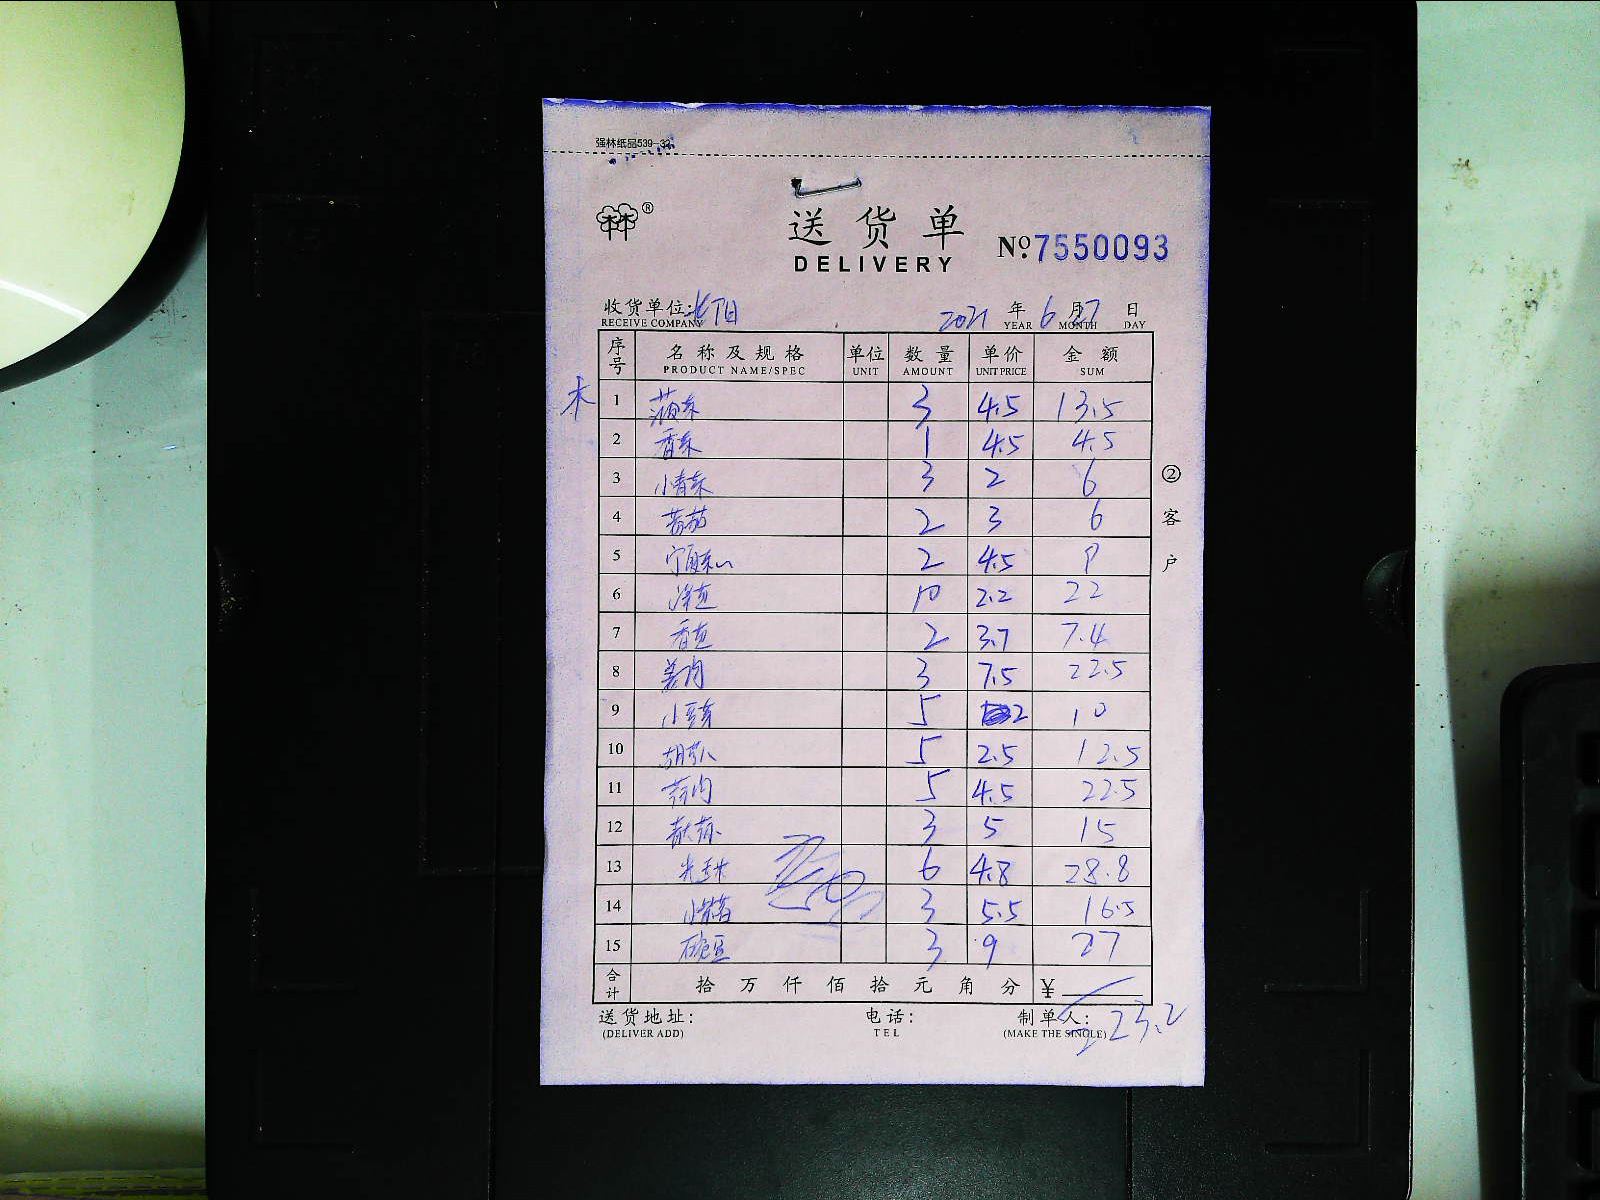 强林纸品539-32
®
送货单
DELIVERY
№:7550093
收货单位: 2021 年 6 月 27 日
RECEIVE COMPANY YEAR MONTH DAY
序号 名称及规格 单位 数量 单价 金额
PRODUCT NAME/SPEC UNIT AMOUNT UNIT PRICE SUM
木 1 菠菜 3 4.5 13.5
2 香菜 1 4.5 4.5
3 小青菜 3 2 6
4 蕃茄 2 3 6
5 2 4.5 9
6 10 2.2 22
7 2 3.7 7.4
8 3 7.5 22.5
9 小豆芽 5 2 10
10 5 2.5 12.5
11 5 4.5 22.5
12 3 5 15
13 6 4.8 28.8
14 3 5.5 16.5
15 豌豆 3 9 27
合计 拾 万 仟 佰 拾 元 角 分 ¥
223.2
送货地址: 电话: 制单人:
(DELIVER ADD) TEL (MAKE THE SINGLE)
②客户